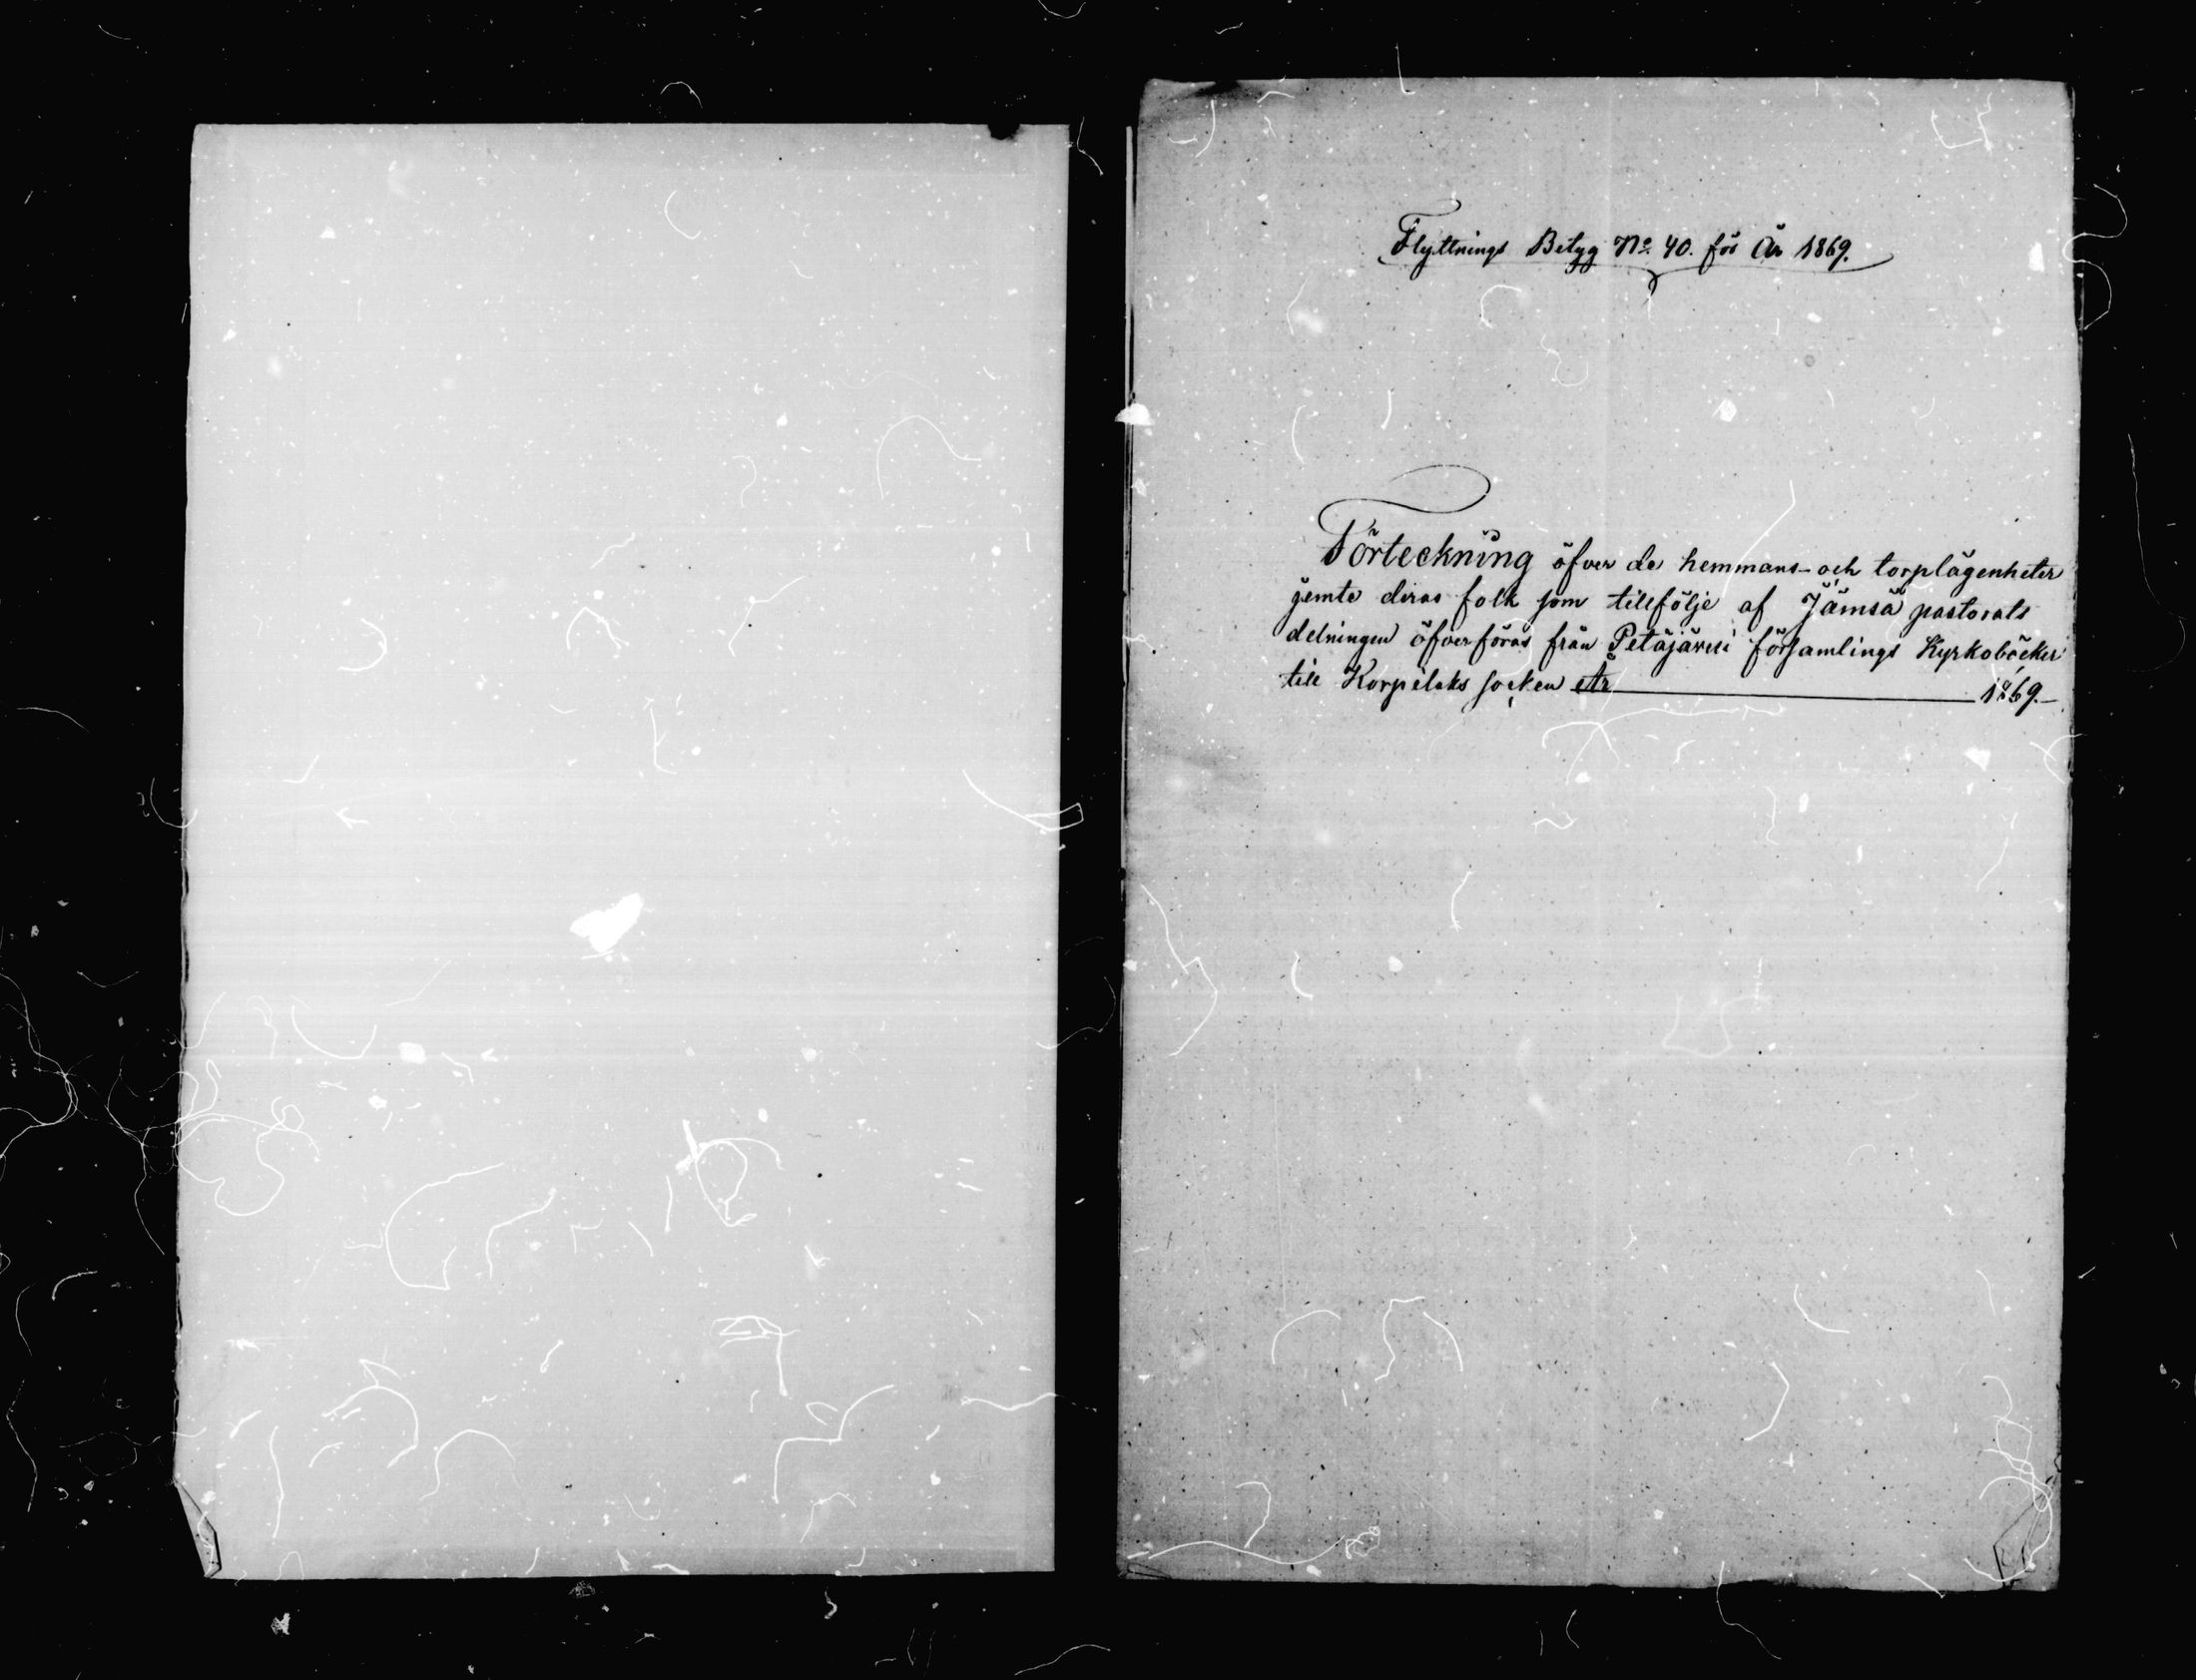 Flyttnings Betyg No. 40. för År 1869.
Förteckning öfver de hemmans- och torplägenheter
jemte deras folk som tillfölje af Jämsä pastorats
delningen öfverföras från Petäjävesi församlings Kyrkoböcker
till Korpilaks socken År 1869.